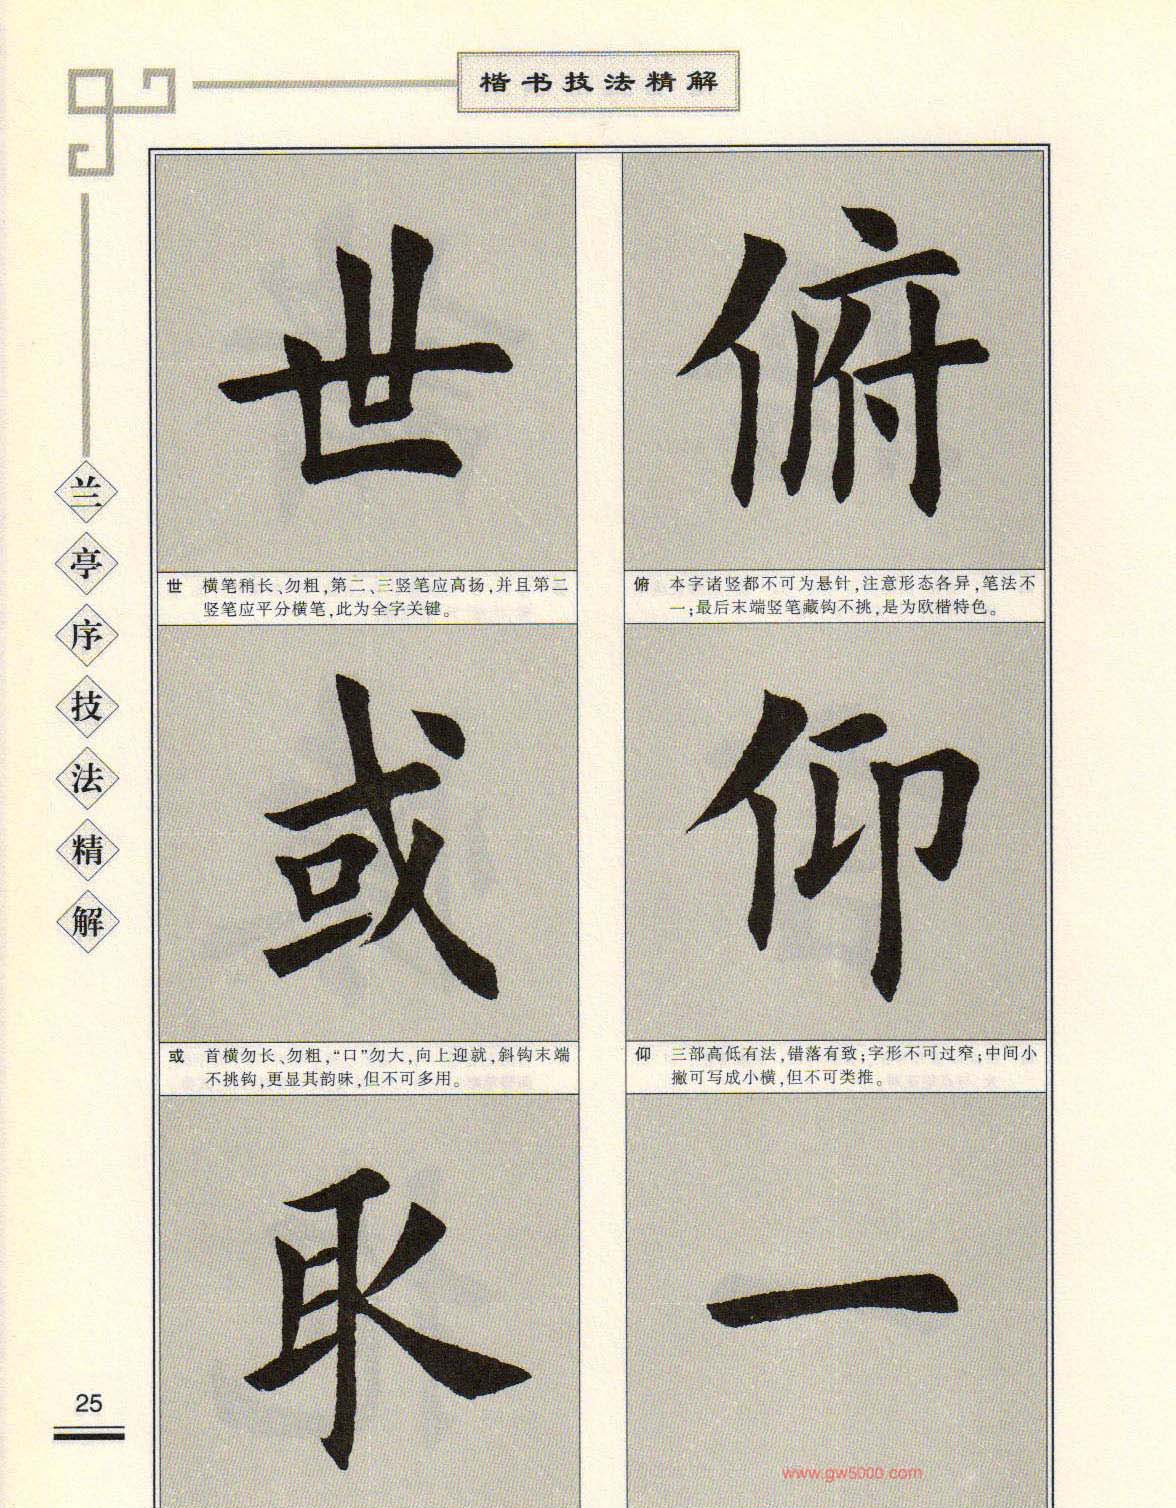 楷书技法精解
兰亭序技法精解
俯
俯 本字诸竖都不可为悬针,注意形态各异,笔法不
一;最后末端竖笔藏钩不挑,是为欧楷特色。
仰
仰 三部高低有法,错落有致;字形不可过窄;中间小
撇可写成小横,但不可类推。
一
世
世 横笔稍长、勿粗,第二、三竖笔应高扬,并且第二
竖笔应平分横笔,此为全字关键。
或
或 首横勿长、勿粗,“口”勿大,向上迎就,斜钩末端
不挑钩,更显其韵味,但不可多用。
取
25
www.gw5000.com